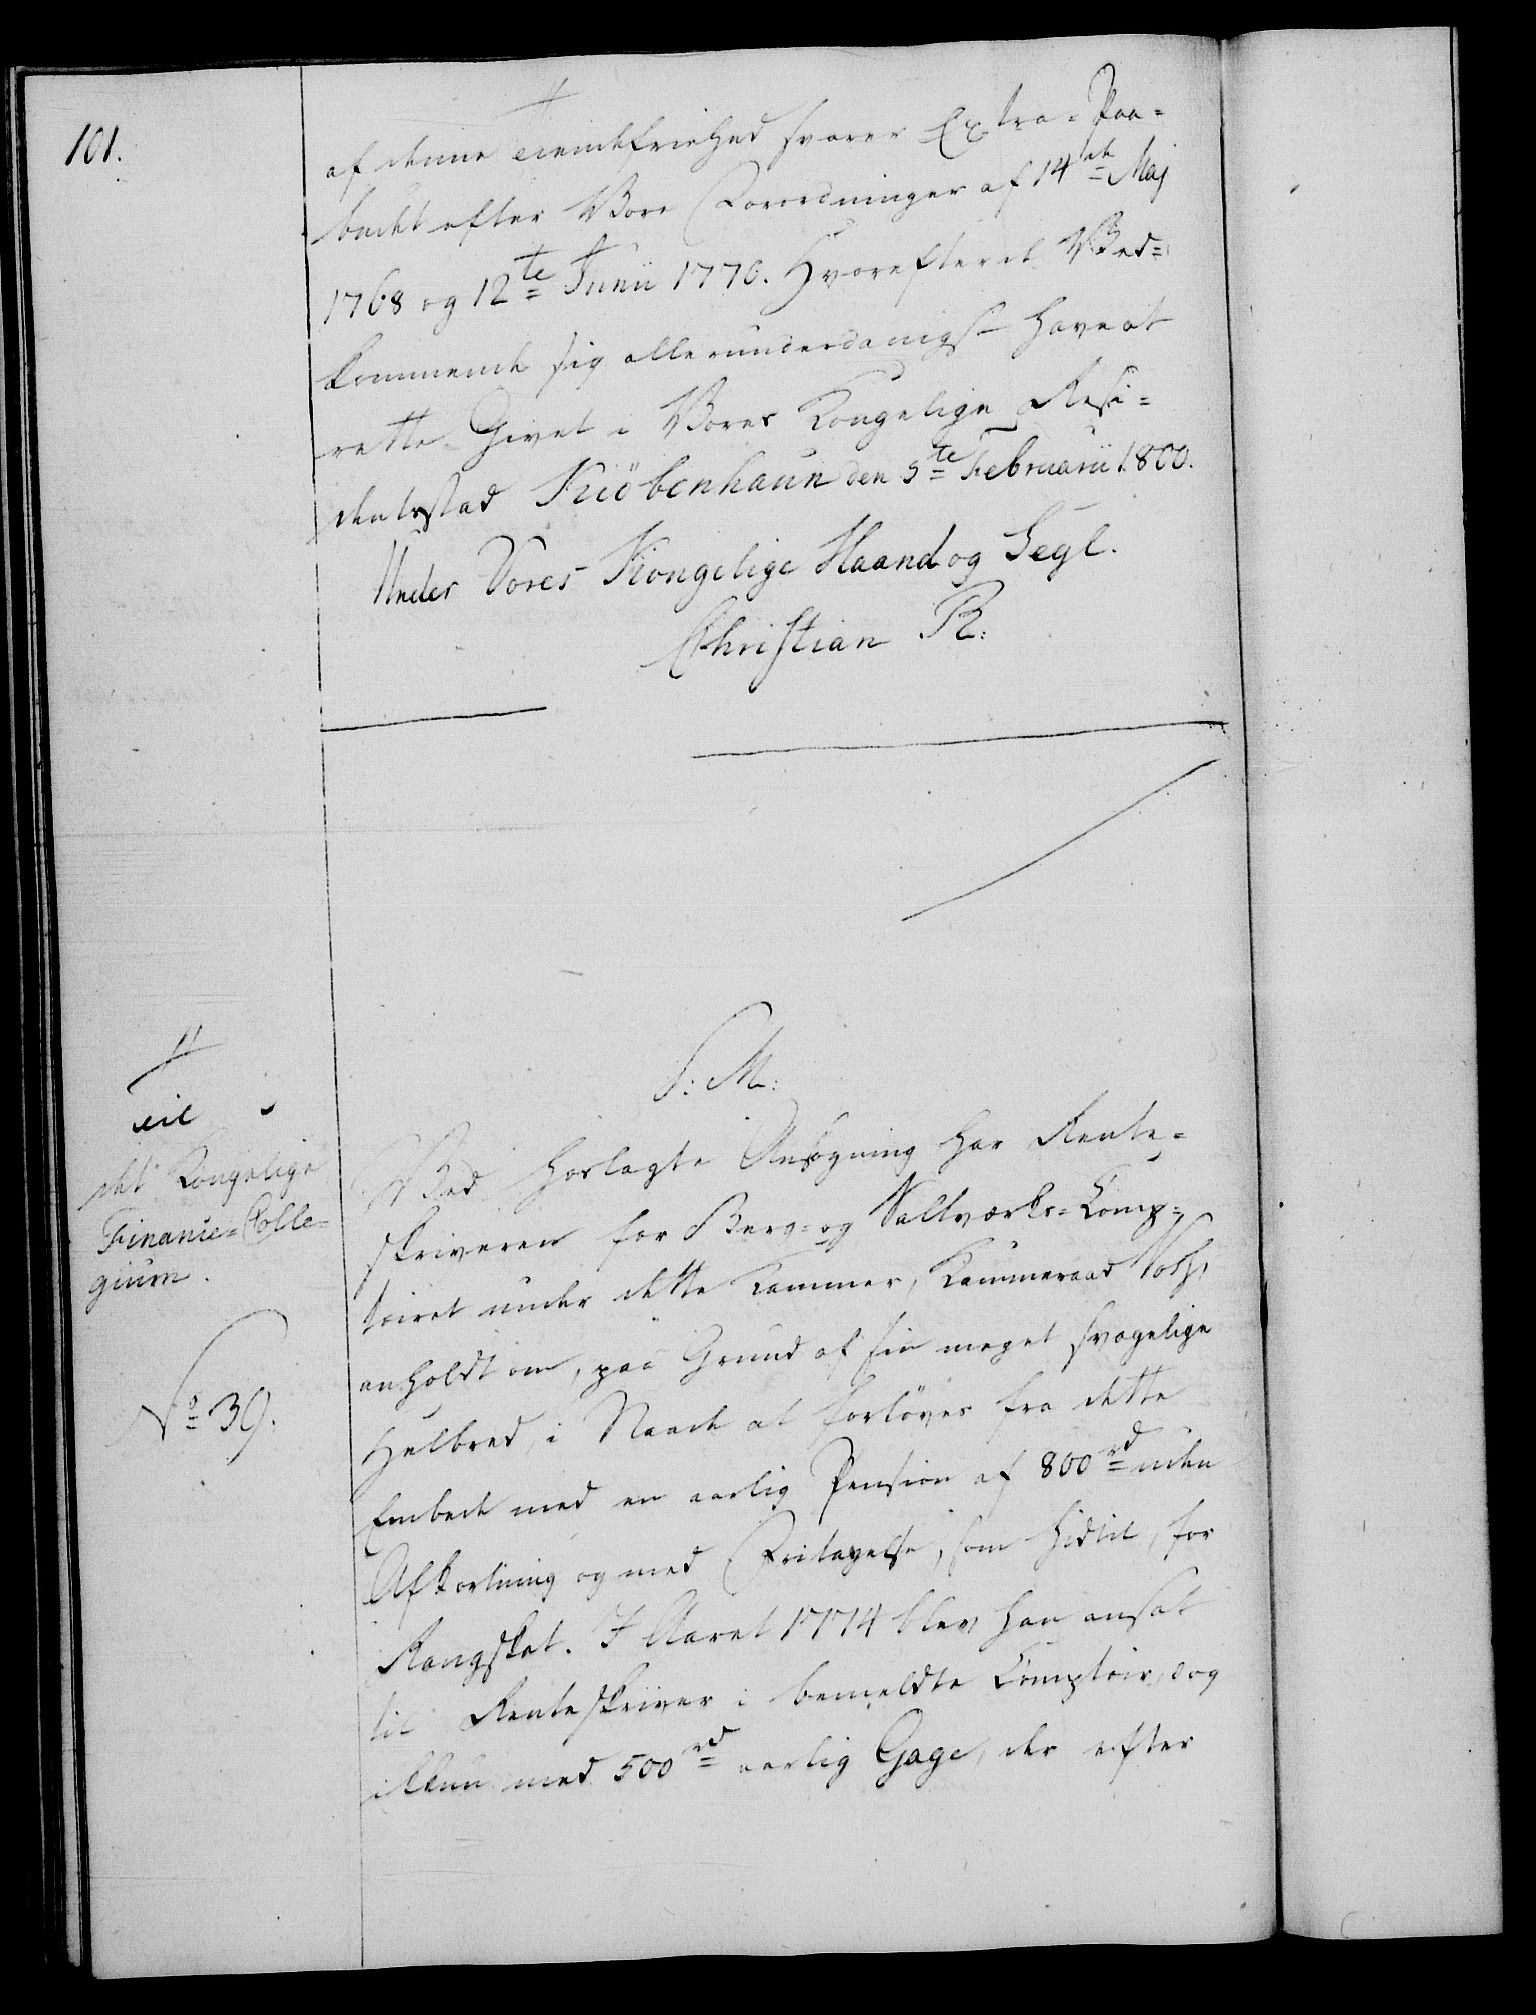 101.
af denne Tiendefriehed svarer Extra-Paa-
budet efter Vore Forordninger af 14de Maj
1768 og 12te Junii 1770. Hvorefter Ved-
kommende sig allerunderdanigst have at
rette. Givet i Vores Kongelige Resi-
dentzstad Kiöbenhaun den 5te Februarii 1800.
Under Vores Kongelige Haand og Segl.
Christian R.
P: M:
Til
det Kongelige
Finance-Colle-
gium.
No 39.
Ved hoslagte Ansøgning har Rente-
skriveren for Berg- og Saltværks-Comp-
toiret under dette Kammer, Kammeraad
anholdt om, paa Grund af sin meget svagelige
Helbred, i Naade at forløves fra dette
Embede med en aarlig Pension af 800 rd uden
Afkortning og med Fritagelse, som hidtil, for
Rangskat. I Aaret 1774 blev han ansat
til Renteskriver i bemeldte Comptoir, dog
ikkun med 500 rd aarlig Gage, der efter